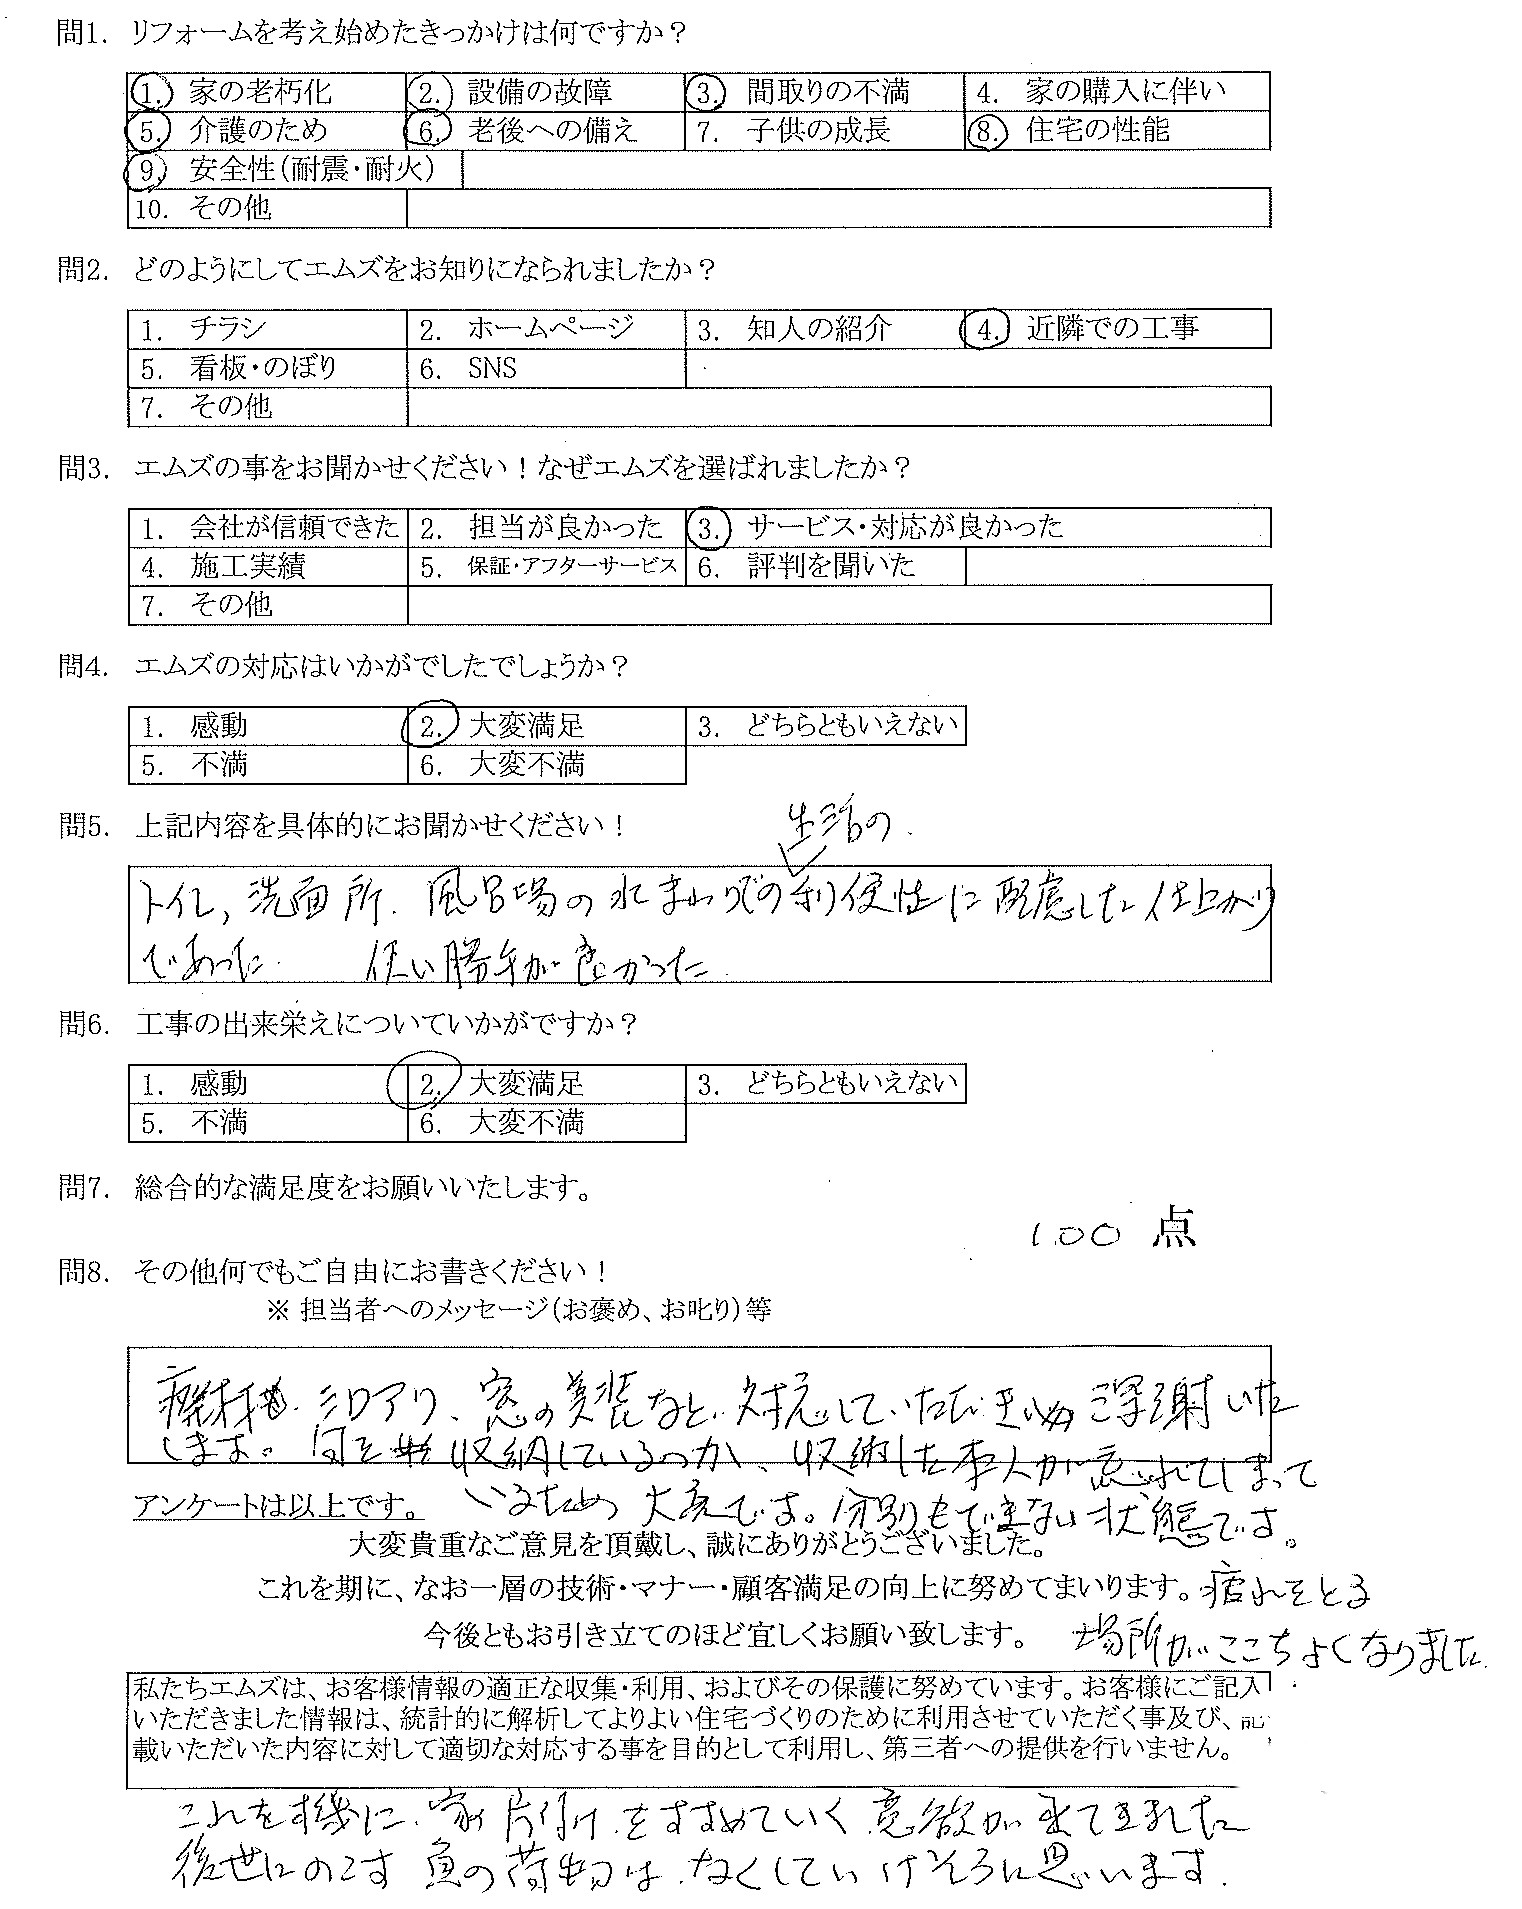 問1. リフォームを考え始めたきっかけは何ですか？
1. 家の老朽化 2. 設備の故障 3. 間取りの不満 4. 家の購入に伴い
5. 介護のため 6. 老後への備え 7. 子供の成長 8. 住宅の性能
9. 安全性（耐震・耐火）
10. その他
問2. どのようにしてエムズをお知りになられましたか？
1. チラシ 2. ホームページ 3. 知人の紹介 4. 近隣での工事
5. 看板・のぼり 6. SNS
7. その他
問3. エムズの事をお聞かせください！なぜエムズを選ばれましたか？
1. 会社が信頼できた 2. 担当が良かった 3. サービス・対応が良かった
4. 施工実績 5. 保証・アフターサービス 6. 評判を聞いた
7. その他
問4. エムズの対応はいかがでしたでしょうか？
1. 感動 2. 大変満足 3. どちらともいえない
5. 不満 6. 大変不満
問5. 上記内容を具体的にお聞かせください！
生活の
トイレ, 洗面所. 風呂場の水まわりの利便性に配慮した仕上がり
であった 使い勝手が良かった
問6. 工事の出来栄えについていかがですか？
1. 感動 2. 大変満足 3. どちらともいえない
5. 不満 6. 大変不満
問7. 総合的な満足度をお願いいたします。
100 点
問8. その他何でもご自由にお書きください！
※ 担当者へのメッセージ（お褒め、お叱り）等
シロアリ、窓の美装など対応していただき 深謝いた
します。何を 収納しているのか、収納した本人が忘れてしまって
アンケートは以上です。 いるため 大変です。分別もできない状態です。
大変貴重なご意見を頂戴し、誠にありがとうございました。
これを期に、なお一層の技術・マナー・顧客満足の向上に努めてまいります。 疲れをとる
今後ともお引き立てのほど宜しくお願い致します。 場所がここちよくなりました
私たちエムズは、お客様情報の適正な収集・利用、およびその保護に努めています。お客様にご記入
いただきました情報は、統計的に解析してよりよい住宅づくりのために利用させていただく事及び、記
載いただいた内容に対して適切な対応する事を目的として利用し、第三者への提供を行いません。
これを機に、家 片付けをすすめていく意欲が出てきました
後世にのこす負の荷物は なくしていけそうに思います.